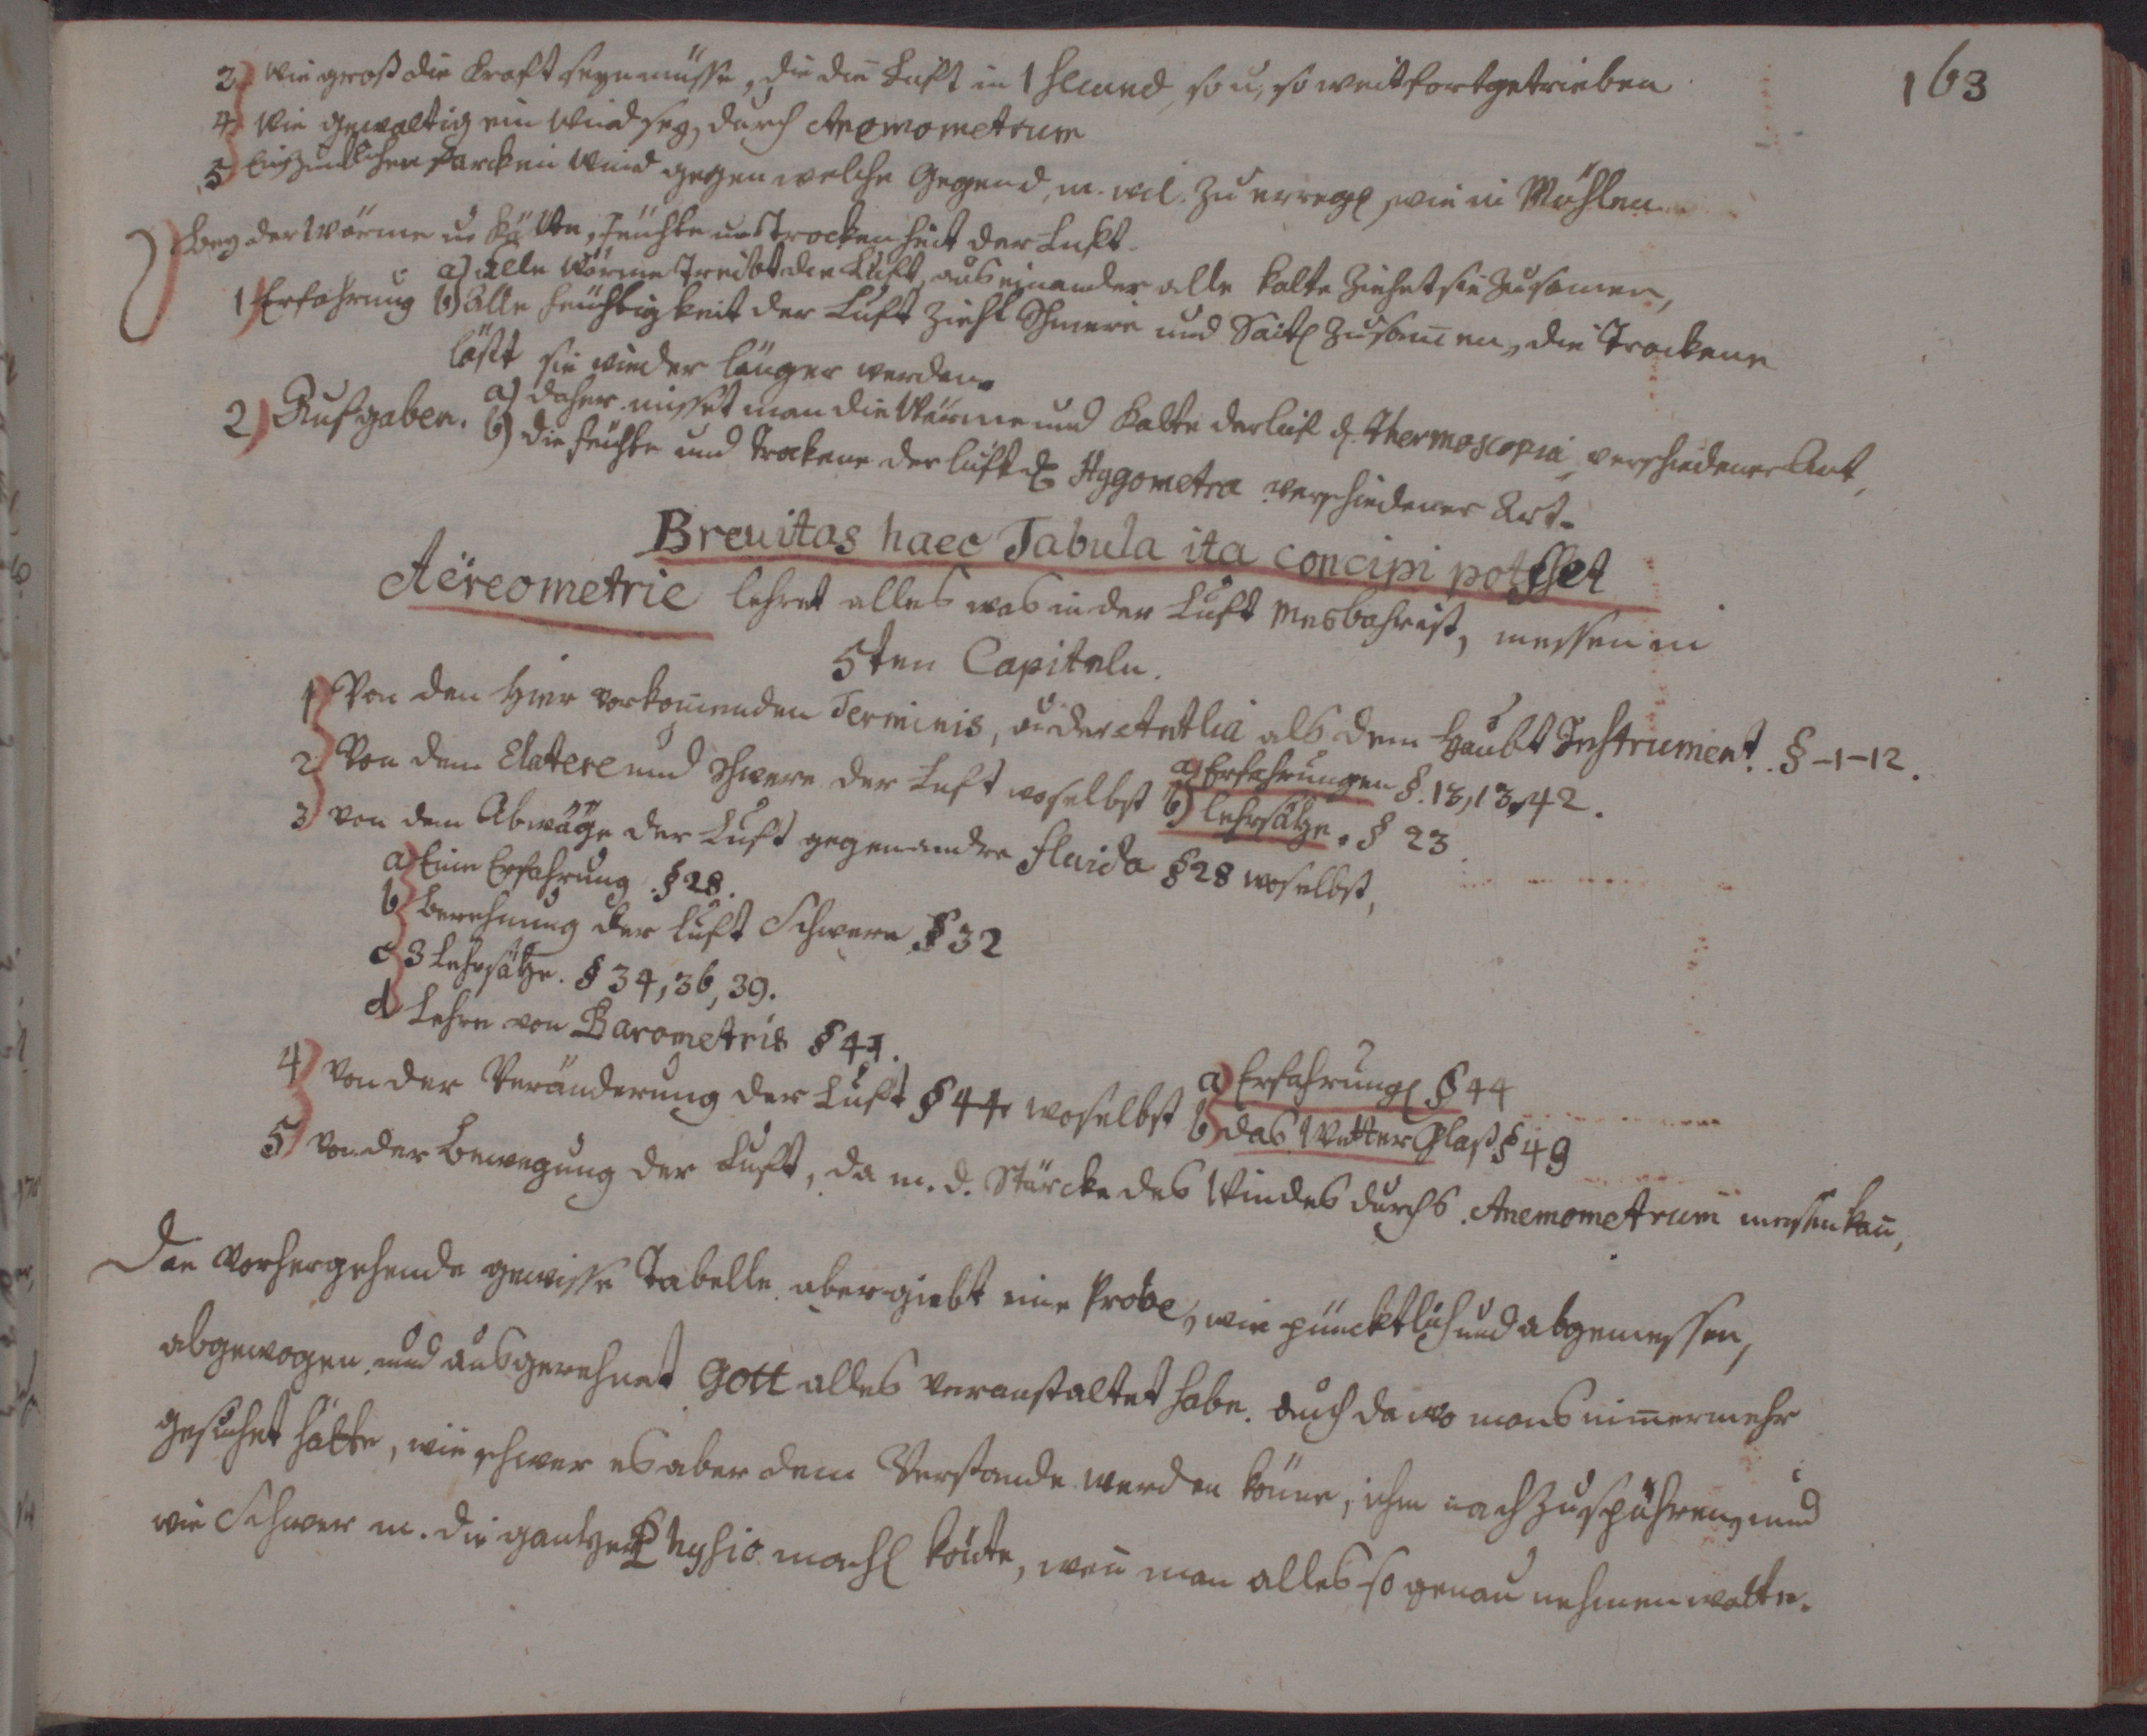 163
3) Wie groß die Kraft seyn müsse, die die Luft in 1 Secund, so u. so weit fortgetrieben
4) Wie gewaltig ein Wind sey, durch Anemometrum
5) starcken Wind gegen welche Gegend, m. wil. zu erregē, wie in Mühlen
Bey der Wärme u. Kälte, Feuchte und Trockenheit der Luft.
1) Erfahrung a) Alle Wärme treibt die Luft auseinander alle Kalte ziehet sie zusamen,
b) Alle Feuchtigkeit der Luft zieht Schnüre und Saitē zusam̄en, die Trockene
läßt sie wieder länger werden.
2) Aufgaben. a) daher misset man die Wärme und Kalte der luft d. Thermoscopia, verschiedener Art,
b) die Feuchte und Trockene der luft d. Hygometra verschiedener Art.
Breuitas haec Tabula ita concipi potsset
Aëreometrie lehret alles was in der Luft Mesbahr ist, messen in
5ten Capiteln.
1) Von den hier vorkom̄enden Terminis, u. der Antlia als dem Haubt Instrument. § -1-12.
2) Von dem Elatere und Schwere der Luft woselbst a) Erfahrungen §. 13, 13, 42.
b) Lehrsätze. § 23.
3) Von dem Abwäge der Luft gegen andre Fluida § 28 woselbst,
a) Eine Erfahrung § 28.
b) Berechnung der luft Schwere § 32
c) 3 Lehrsätze. § 34, 36, 39.
d) Lehre von Barometris § 41.
4) Von der Veränderung der Luft § 44 woselbst a) Erfahrungē § 44
b) das Wetter Glaß § 49
5) Von der Bewegung der Luft, da m. d. Stärcke des Windes durchs Anemometrum messen kan̄,
Die Vorhergehende gewisse Tabelle aber giebt eine Probe, wie püncktlich und abgemessen,
abgewogen und ausgerechnet Gott alles veranstaltet habe. auch da wo mans nim̄ermehr
gesuchet hätte, wie schwer es aber dem Verstande werden könne, ihm nachzuspühren, und
wie Schwer m. die gantze Physic machē könte, wen̄ man alles so genau nehmen wolte.